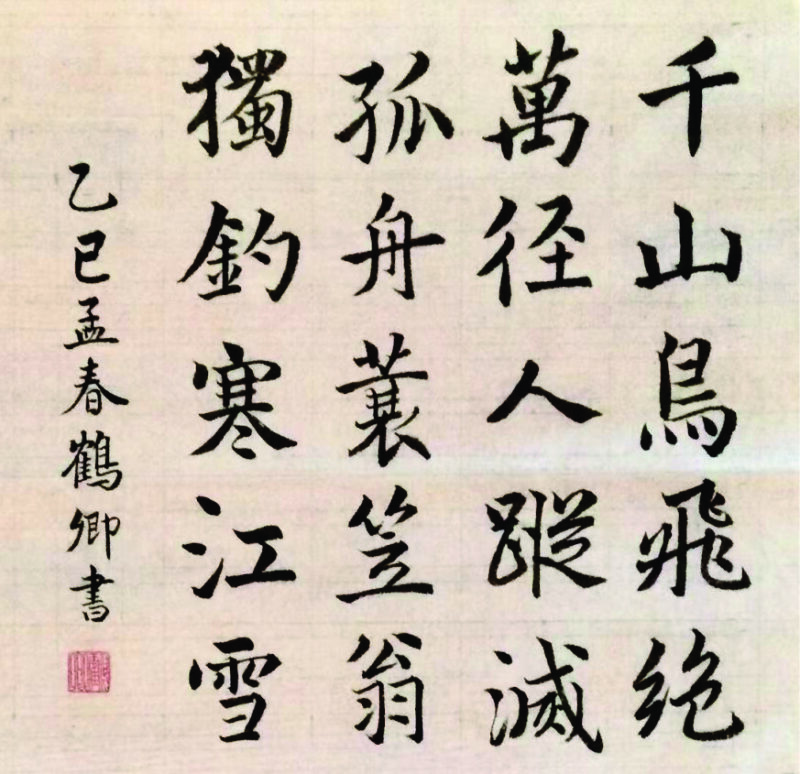 千山鳥飛絶
萬径人蹤滅
孤舟蓑笠翁
獨釣寒江雪
乙巳孟春鶴卿書